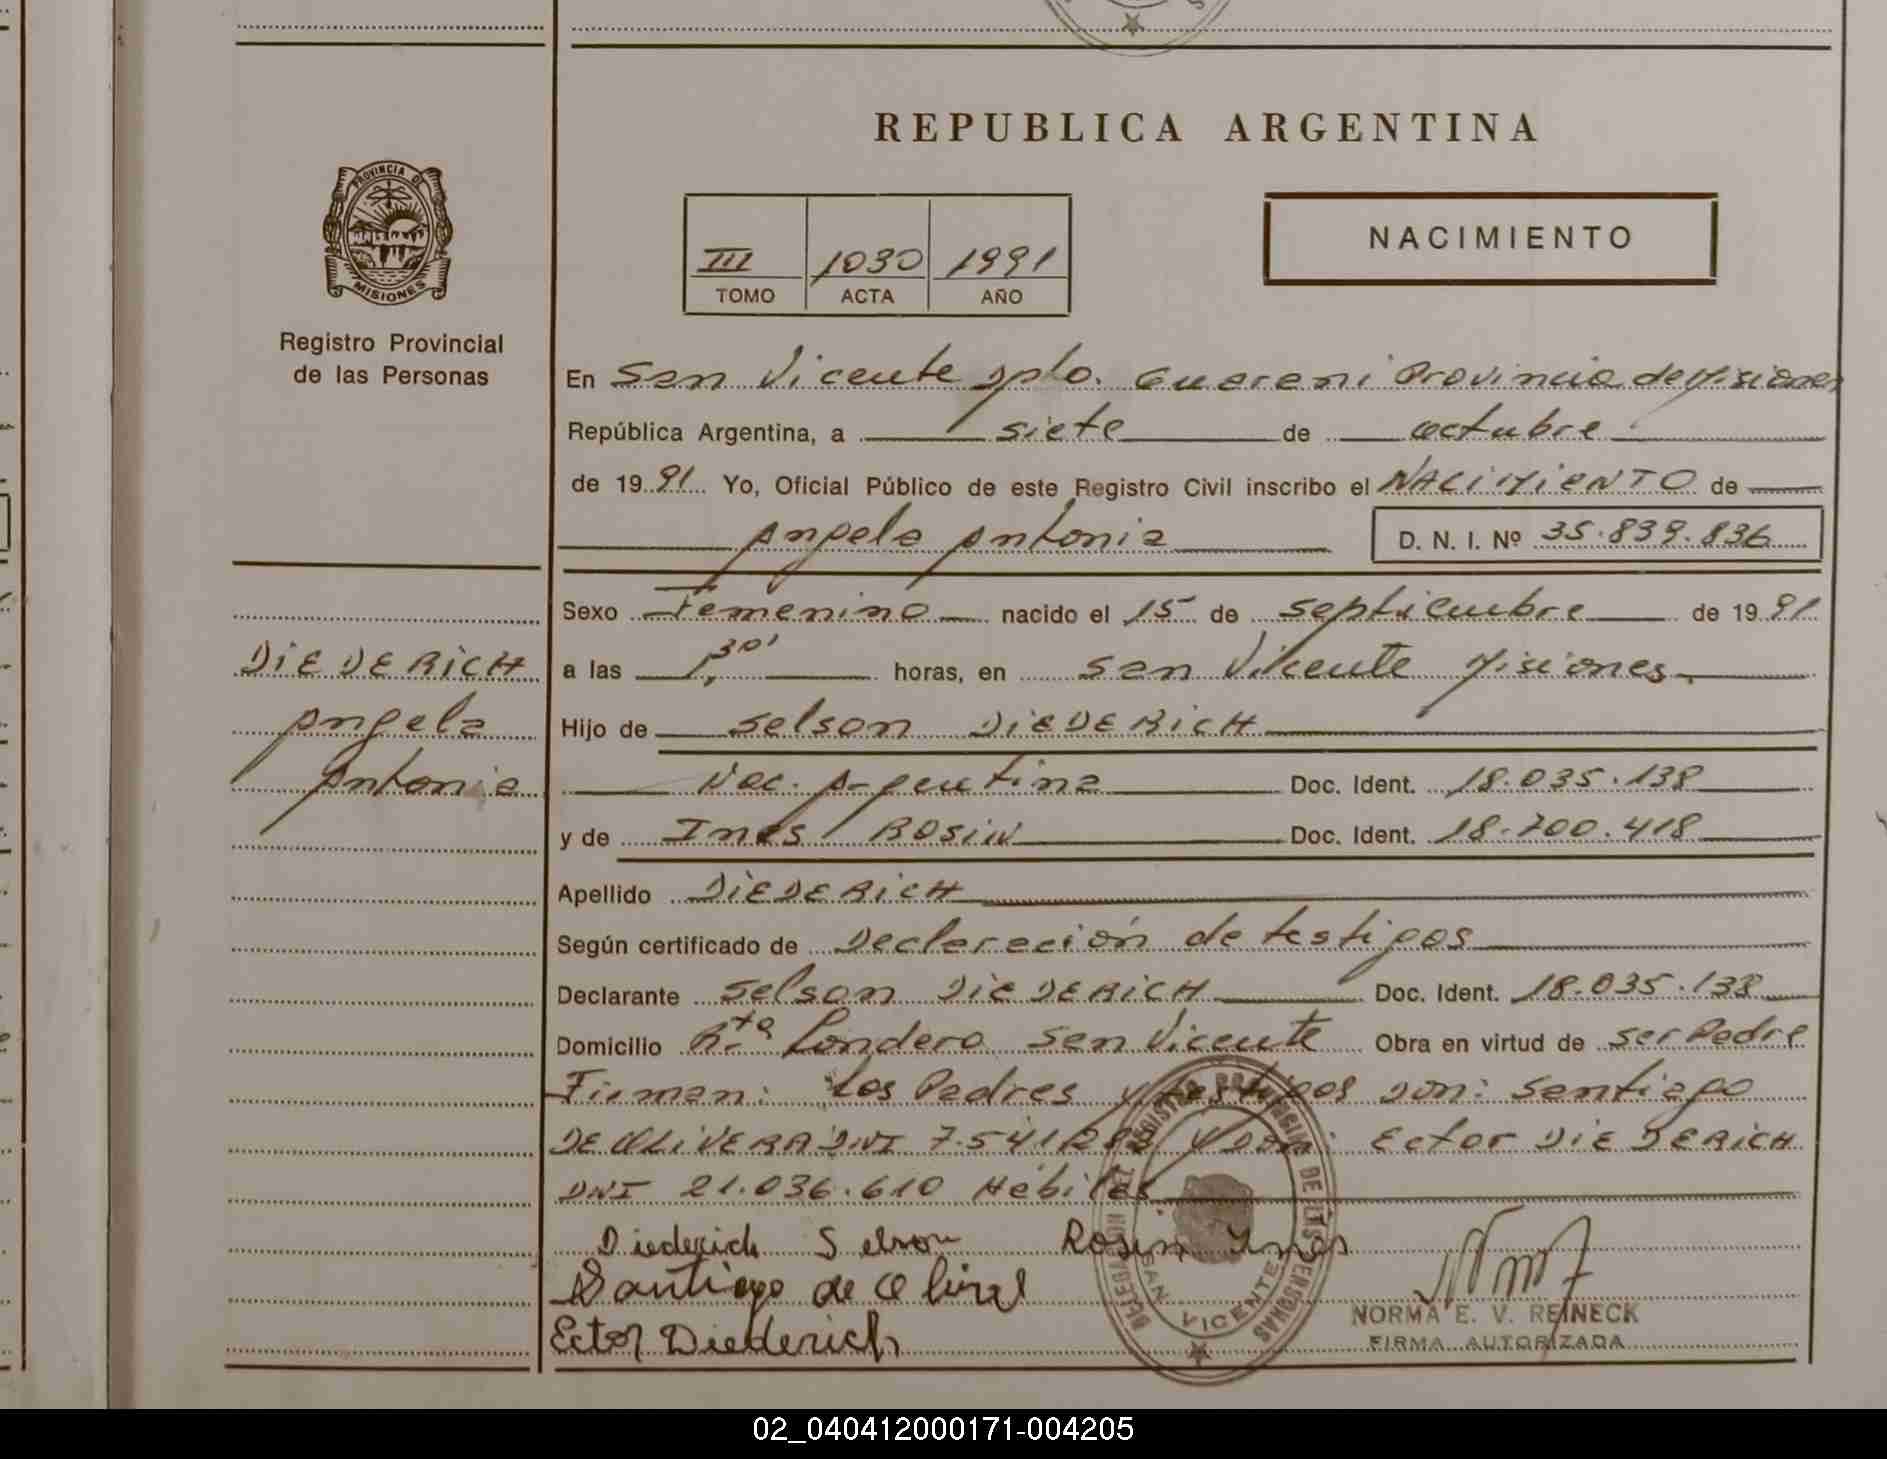 REPUBLICA ARGENTINA
PROVINCIA DE
MISIONES
Registro Provincial
de las Personas
III 1030 1991
TOMO ACTA AÑO
NACIMIENTO
En San Vicente Dpto. Guarani Provincia de Misiones
República Argentina, a siete de octubre
de 1991 Yo, Oficial Público de este Registro Civil inscribo el NACIMIENTO de
Angela Antonia D. N. I. Nº 35.839.836
Sexo Femenino nacido el 15 de septiembre de 1991
a las 1,30' horas, en San Vicente Misiones.
Hijo de Selson DIEDERICH
Nac. Argentina Doc. Ident. 18.035.138
y de Ines ROSIN Doc. Ident. 18.700.418
Apellido DIEDERICH
Según certificado de Declaración de testigos
Declarante Selson DIEDERICH Doc. Ident. 18.035.138
Domicilio Rta Londero San Vicente Obra en virtud de ser Padre
Firman: los Padres y testigos Don: Santiago
DE OLIVERA DNI 7.541.283 y Don: Ector DIEDERICH
DNI 21.036.610 Hábiles
Diederich Selson Rosin Ines
Santiago de
Ector Diederich
DIEDERICH
Angela
Antonia
REGISTRO PROVINCIAL DE LAS PERSONAS
DELEGACION
SAN VICENTE
NORMA E. V. REINECK
FIRMA AUTORIZADA
02_040412000171-004205